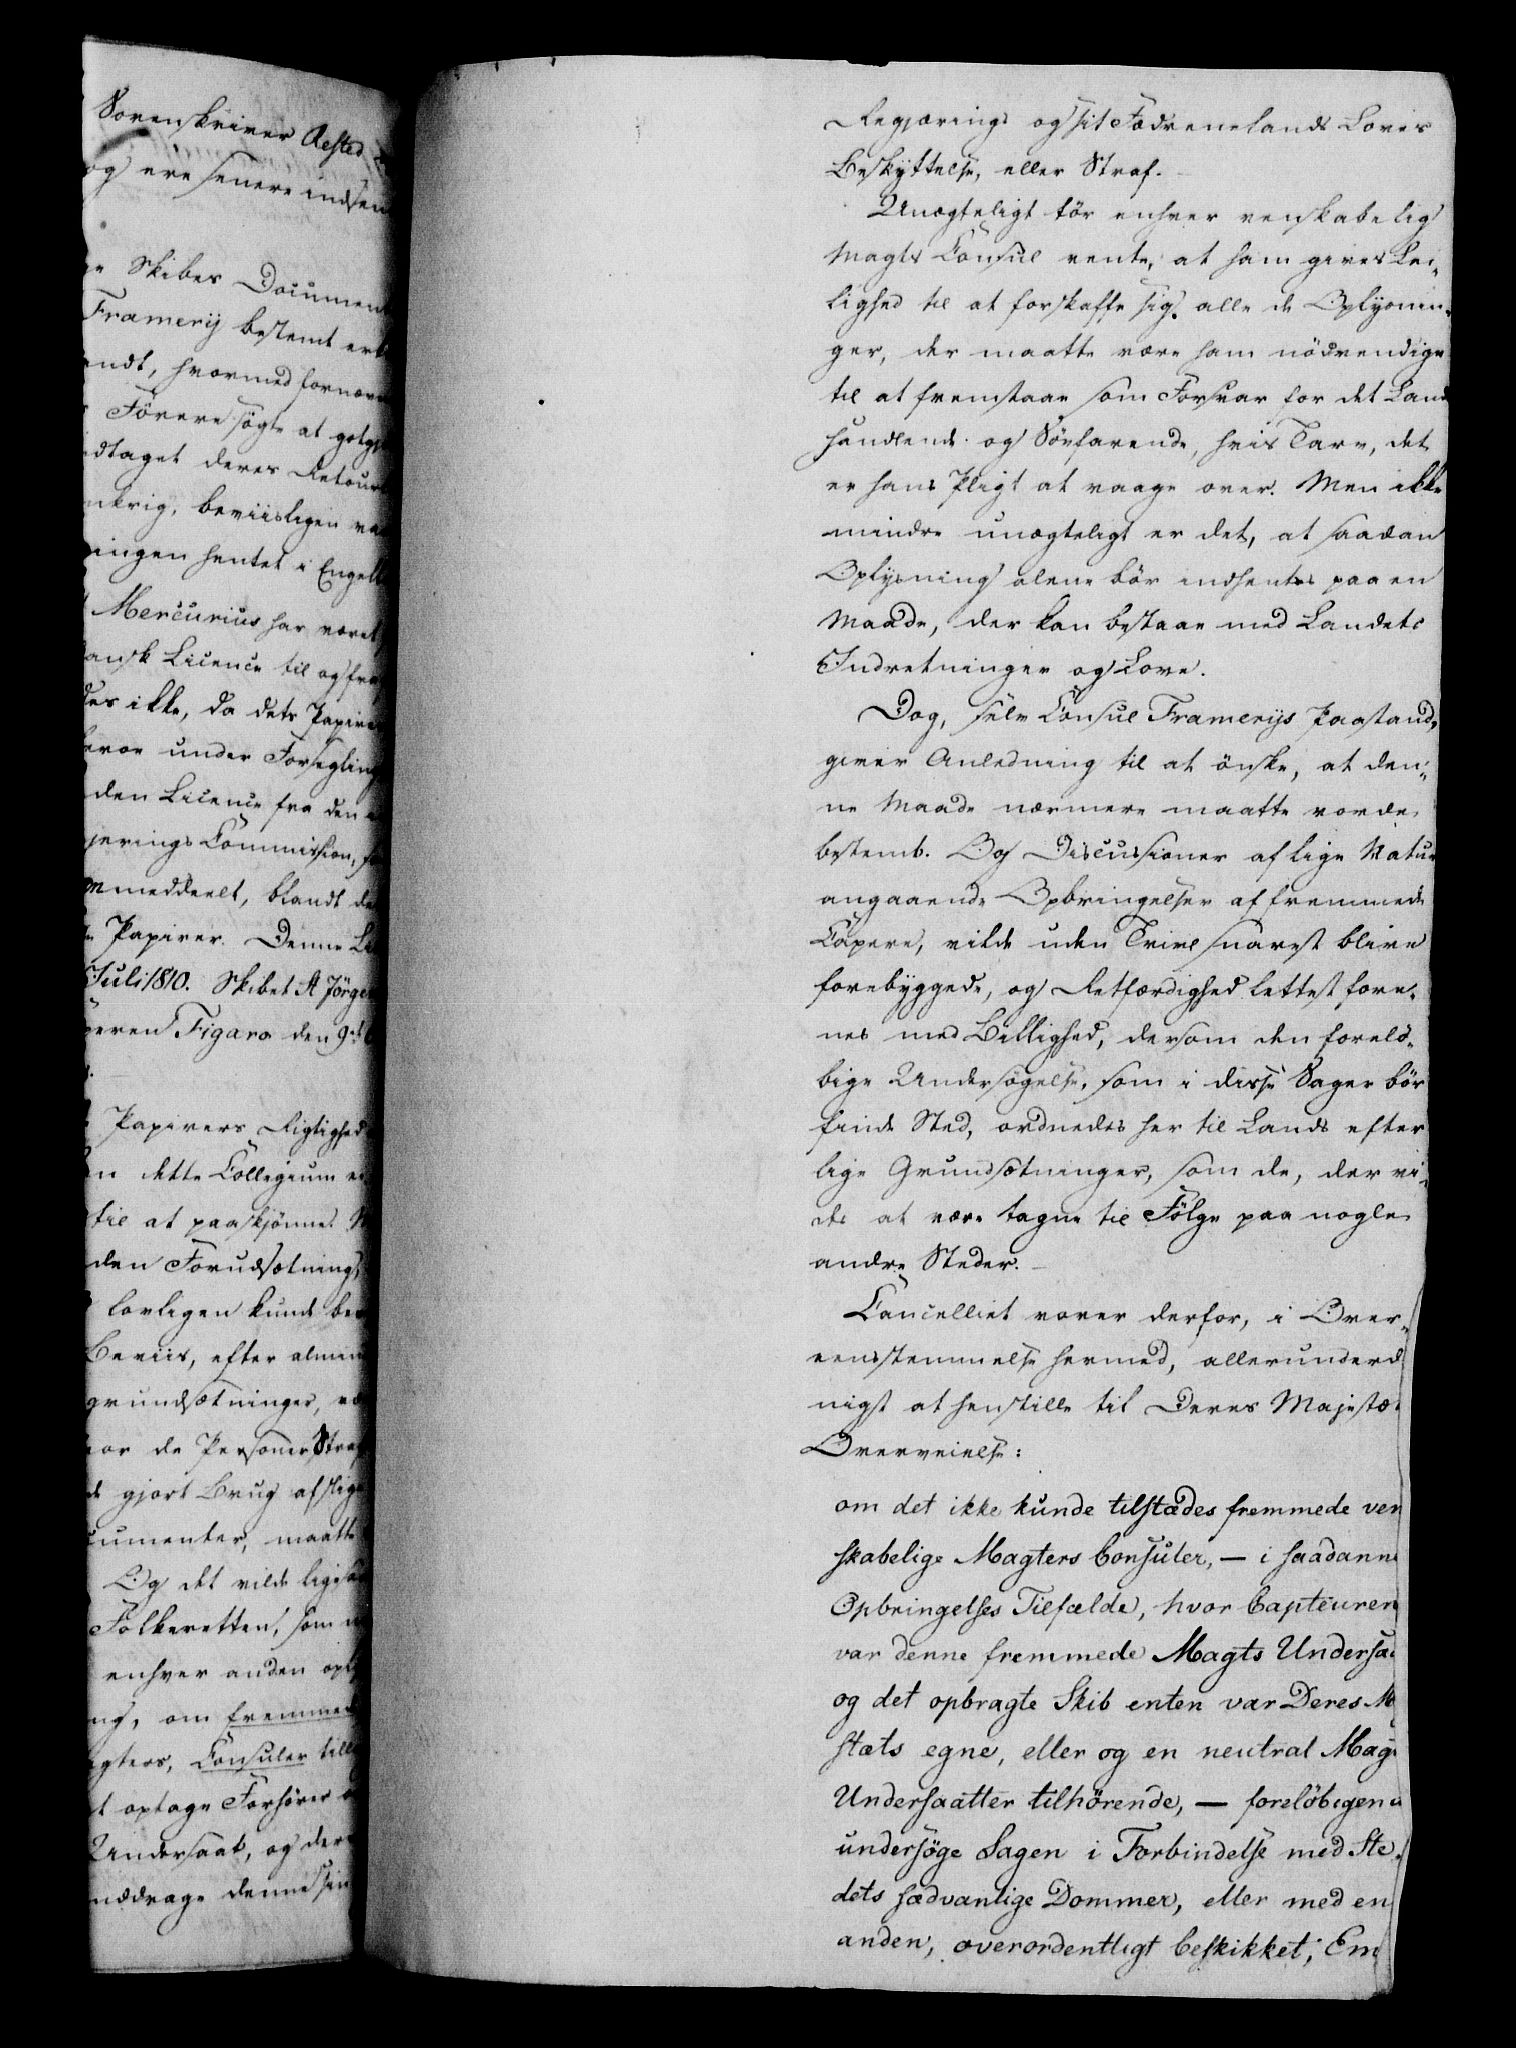 Sorenskriver Aested
og ere senere indsen
Skibes Documen
Framerij bestemt erk
andt, hvormed fornævn
Förere sögte at godtgj
dtaget deres Retour
nkrig, beviisligen va
ingen hentet i Engell
Mercurius har været
ansk Licence til og fra
des ikke, da dets Papire
under Forsegling
den Licence fra den
jerings Commission,
meddeelt, blandt de
Papirer. Denne Li
Juli 1810. Skibet St Jörge
peren Figaro den 9de

Papirers Rigtighed
dette Collegium er
til at paaskjönne.
den Forudsætning,
lovligen kunde be
Beviis, efter almin
grundsætninger,
de Personer Straf
gjort Brug af slig
cumenter, maatte
Og det vilde ligesaa
Folkeretten, som
enhver anden
ng, om fremmede
gters, Consuler till
t optage Forhörer
Undersaat, og der
nddrage denne sin
Regjerings og sit Fædrenelands Loves
Beskyttelse, eller Straf.
Unægteligt tör enhver venskabelig
Magts Consul vente, at ham gives Lei-
lighed til at forskaffe sig alle de Oplysnin-
ger, der maatte være ham nödvendige
til at fremstaae som Forsvar for det Land
handlende og Söefarende, hvis Tarv, det
er hans Pligt at vaage over. Men ikke
mindre unægteligt er det, at saadan
Oplysning alene bör indhentes paa en
Maade, der kan bestaae med Landets
Indretninger og Love.
Dog, selv Consul Framerijs Paastand,
giver Anledning til at önske, at den-
ne Maade nærmere maatte vorde
bestemt. Og Discussioner af lige Natur
angaaende Opbringelser af fremmede
Capere, vilde uden Tvivl snarest blive
forebyggede, og Retfærdighed lettest fore-
nes med Billighed, dersom den forelö-
bige Undersögelse, som i disse Sager bör
finde Sted, ordnedes her til Lands efter
lige Grundsætninger, som de, der vi-
des at være tagne til Fölge paa nogle
andre Steder.
Cancelliet vover derfor, i Over-
eensstemmelse hermed, allerunderd
nigst at henstille til Deres Majestæ
Overveielse:
om det ikke kunde tilstædes fremmede ven
skabelige Magters Consuler, — i saadanne
Opbringelses Tilfælde, hvor Capteuren
var denne fremmede Magts Undersaa
og det opbragte Skib enten var Deres M
stæts egne, eller og en neutral Mag
Undersaatter tilhörende, — forelöbigen
undersöge Sagen i Forbindelse med Ste-
dets sædvanlige Dommer, eller med en
anden, overordentligt beskikket, Em